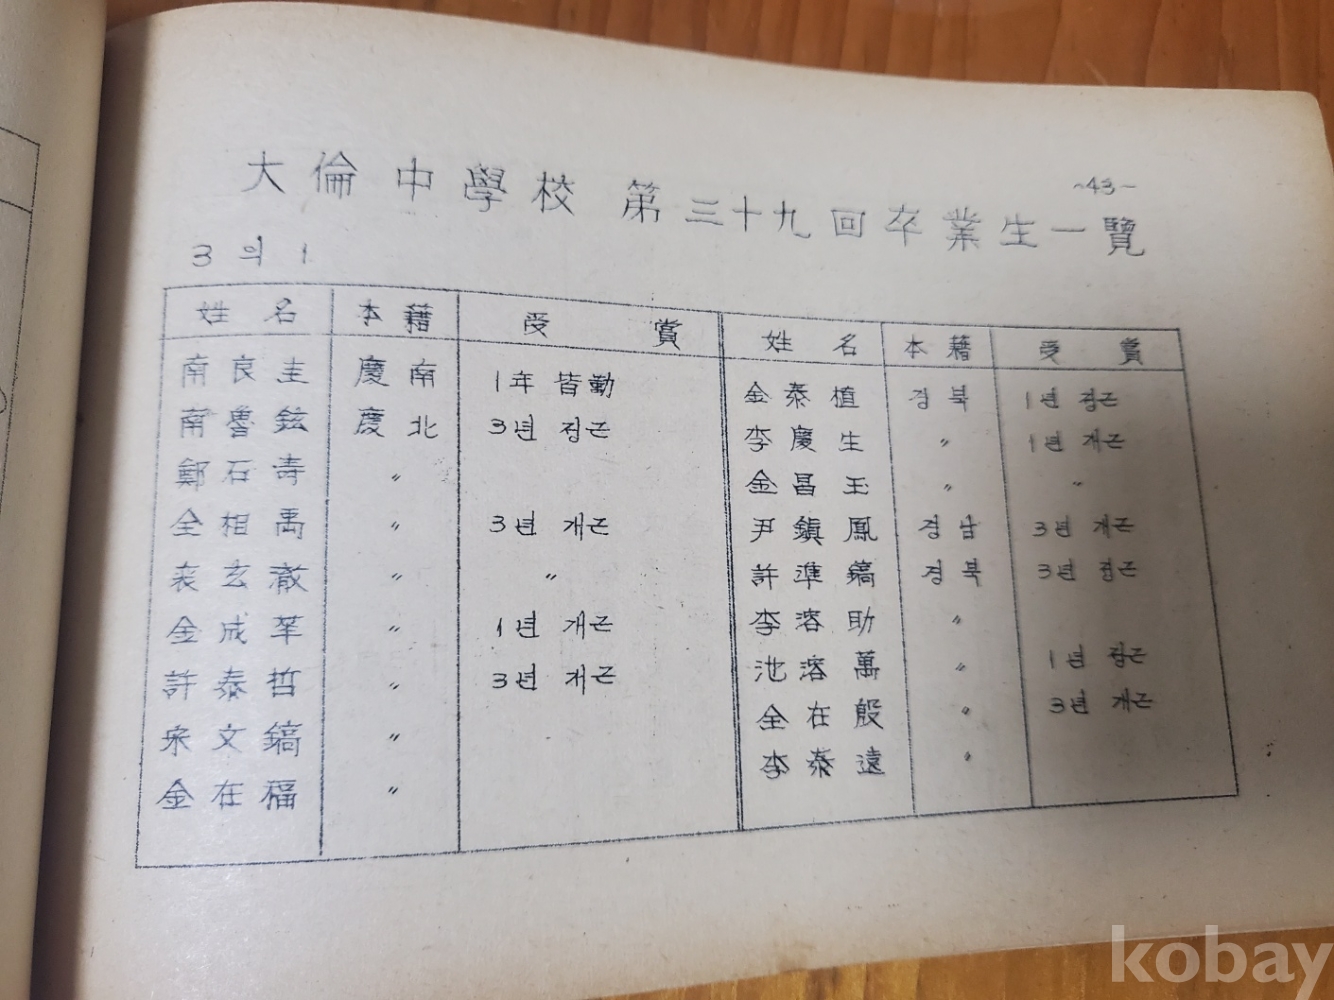 ~43~
大倫中學校 第三十九回卒業生一覽
3의 1
姓名 本籍 受賞
南良圭 慶南 1年 皆勤
南魯鉉 慶北 3년 정근
鄭石壽 〃
全相禹 〃 3년 개근
裵玄澈 〃 〃
金成華 〃 1년 개근
許泰哲 〃 3년 개근
文鎬 〃
金在福 〃
姓名 本籍 受賞
金泰植 경북 1년 정근
李慶生 〃 1년 개근
金昌玉 〃 〃
尹鎭鳳 경남 3년 개근
許準鎬 경북 3년 정근
李溶助 〃
池溶萬 〃 1년 정근
全在殷 〃 3년 개근
李泰遠 〃
kobay